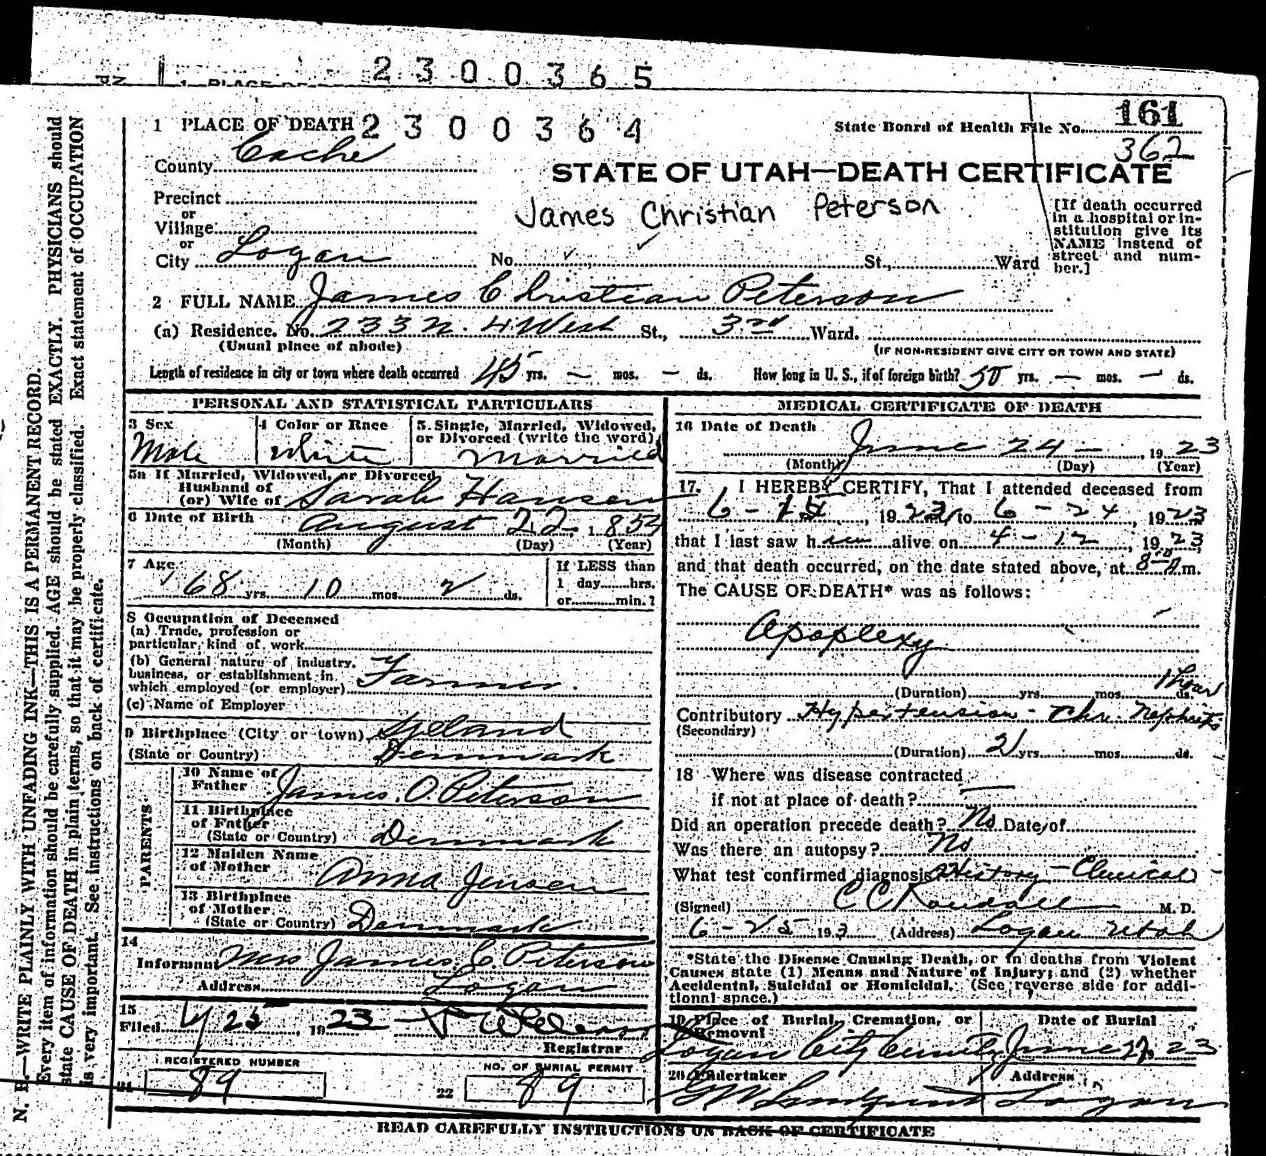 2300365
1 PLACE OF DEATH 2300364
State Board of Health File No. 161
362
County Cache
STATE OF UTAH—DEATH CERTIFICATE
Precinct
or
Village
or
City Logan
James Christian Peterson
No. St., Ward
[If death occurred
in a hospital or in-
stitution give its
NAME instead of
street and num-
ber.]
2 FULL NAME James Christian Peterson
(a) Residence. No. 233 N. 4 West St., 3rd Ward.
(Usual place of abode)
(IF NON-RESIDENT GIVE CITY OR TOWN AND STATE)
Length of residence in city or town where death occurred 45 yrs. — mos. — ds. How long in U. S., if of foreign birth? 50 yrs. — mos. — ds.
PERSONAL AND STATISTICAL PARTICULARS
3 Sex
Male
4 Color or Race
White
5 Single, Married, Widowed,
or Divorced (write the word)
Married
5a If Married, Widowed, or Divorced
Husband of
(or) Wife of Sarah Hansen
6 Date of Birth August 22, 1854
(Month) (Day) (Year)
7 Age
68 yrs. 10 mos. 2 ds.
If LESS than
1 day, hrs.
or min.?
8 Occupation of Deceased
(a) Trade, profession or
particular kind of work
(b) General nature of industry,
business, or establishment in
which employed (or employer) Farmer.
(c) Name of Employer
9 Birthplace (City or town)
(State or Country) Denmark
PARENTS
10 Name of
Father James O Peterson
11 Birthplace
of Father
(State or Country) Denmark
12 Maiden Name
of Mother Anna Jensen
13 Birthplace
of Mother
(State or Country) Denmark
14
Informant Mrs James C. Peterson
Address Logan
15
Filed 25, 1923
Registrar
REGISTERED NUMBER
21 89
NO. OF BURIAL PERMIT
22 89
MEDICAL CERTIFICATE OF DEATH
16 Date of Death
June 24 — , 1923
(Month) (Day) (Year)
17. I HEREBY CERTIFY, That I attended deceased from
6 - 15, 1923, to 6 - 24, 1923
that I last saw him alive on 4 - 12, 1923
and that death occurred, on the date stated above, at 8 m.
The CAUSE OF DEATH* was as follows:
Apoplexy
(Duration) yrs. mos. ds. 1 hour
Contributory Hypertension - Chr. Nephritis
(Secondary)
(Duration) 2 yrs. mos. ds.
18 Where was disease contracted
if not at place of death? —
Did an operation precede death? No Date of
Was there an autopsy? No
What test confirmed diagnosis? History - Clinical
(Signed) C C Randall M. D.
6 - 25 1923 (Address) Logan Utah
*State the Disease Causing Death, or in deaths from Violent
Causes state (1) Means and Nature of Injury; and (2) whether
Accidental, Suicidal or Homicidal. (See reverse side for addi-
tional space.)
19 Place of Burial, Cremation, or
Removal
Logan City
Date of Burial
June 27, 23
20 Undertaker
G W Lindquist
Address
Logan
READ CAREFULLY INSTRUCTIONS ON BACK OF CERTIFICATE
N. B.—WRITE PLAINLY WITH UNFADING INK—THIS IS A PERMANENT RECORD.
Every item of information should be carefully supplied. AGE should be stated EXACTLY. PHYSICIANS should
state CAUSE OF DEATH in plain terms, so that it may be properly classified. Exact statement of OCCUPATION
is very important. See instructions on back of certificate.